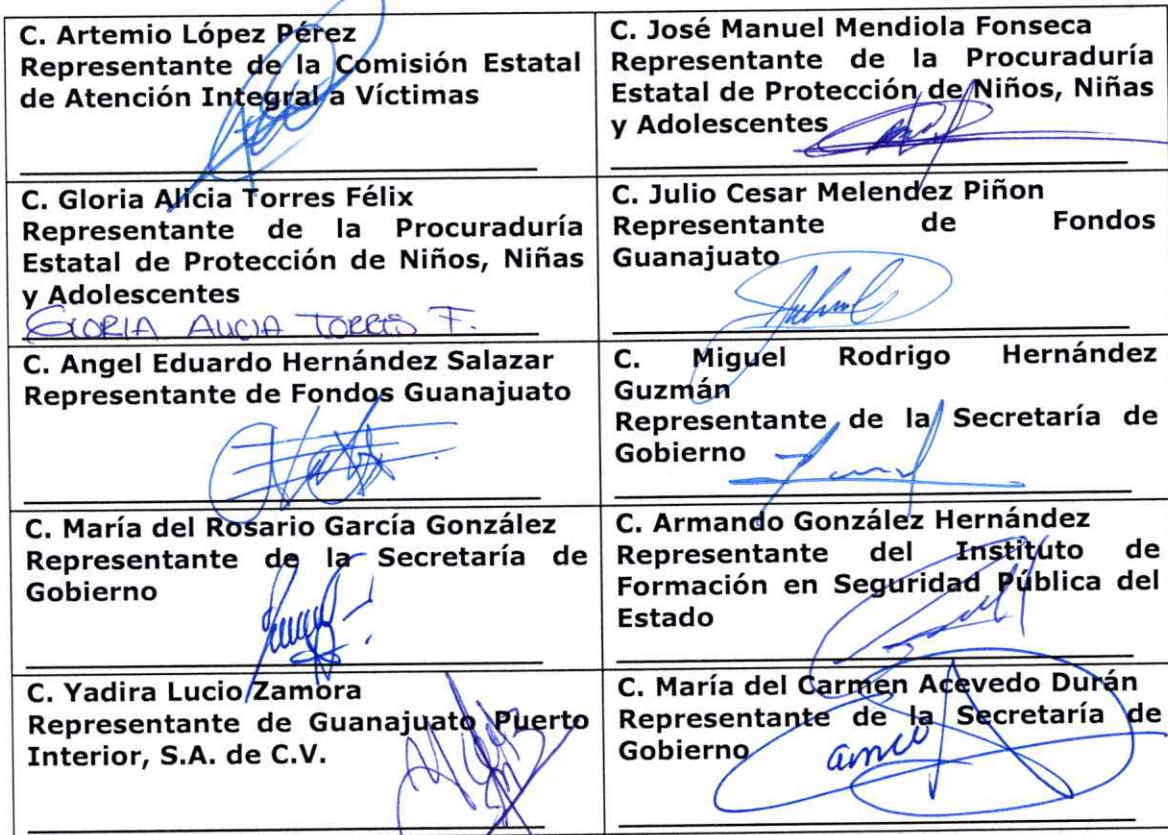 C. Artemio López Pérez
Representante de la Comisión Estatal
de Atención Integral a Víctimas
C. José Manuel Mendiola Fonseca
Representante de la Procuraduría
Estatal de Protección de Niños, Niñas
y Adolescentes
C. Gloria Alicia Torres Félix
Representante de la Procuraduría
Estatal de Protección de Niños, Niñas
y Adolescentes
GLORIA ALICIA TORRES F.
C. Julio Cesar Melendez Piñon
Representante de Fondos
Guanajuato
C. Angel Eduardo Hernández Salazar
Representante de Fondos Guanajuato
C. Miguel Rodrigo Hernández
Guzmán
Representante de la Secretaría de
Gobierno
C. María del Rosario García González
Representante de la Secretaría de
Gobierno
C. Armando González Hernández
Representante del Instituto de
Formación en Seguridad Pública del
Estado
C. Yadira Lucio Zamora
Representante de Guanajuato Puerto
Interior, S.A. de C.V.
C. María del Carmen Acevedo Durán
Representante de la Secretaría de
Gobierno